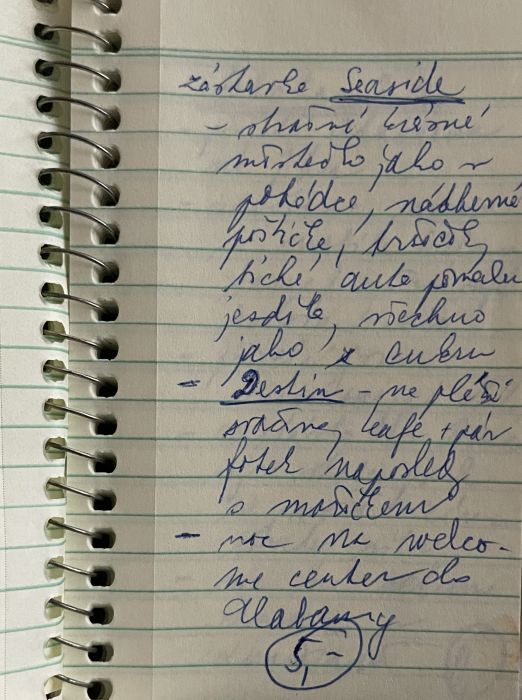 zástavka Seaside
- strašně krásné
městečko, jako v
pohádce, nádherné
poštička, krásičky
tiché, auta pomalu
jezdila, všechno
jako z cukru
- Destin - na pláži
svačina, kafe + pár
fotek naposled
s mořičkem
- noc na welco-
me center do
Alabamy
5,-